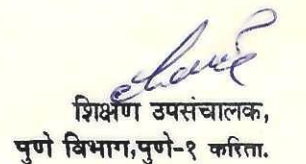 शिक्षण उपसंचालक,
पुणे विभाग,पुणे-१ करिता.